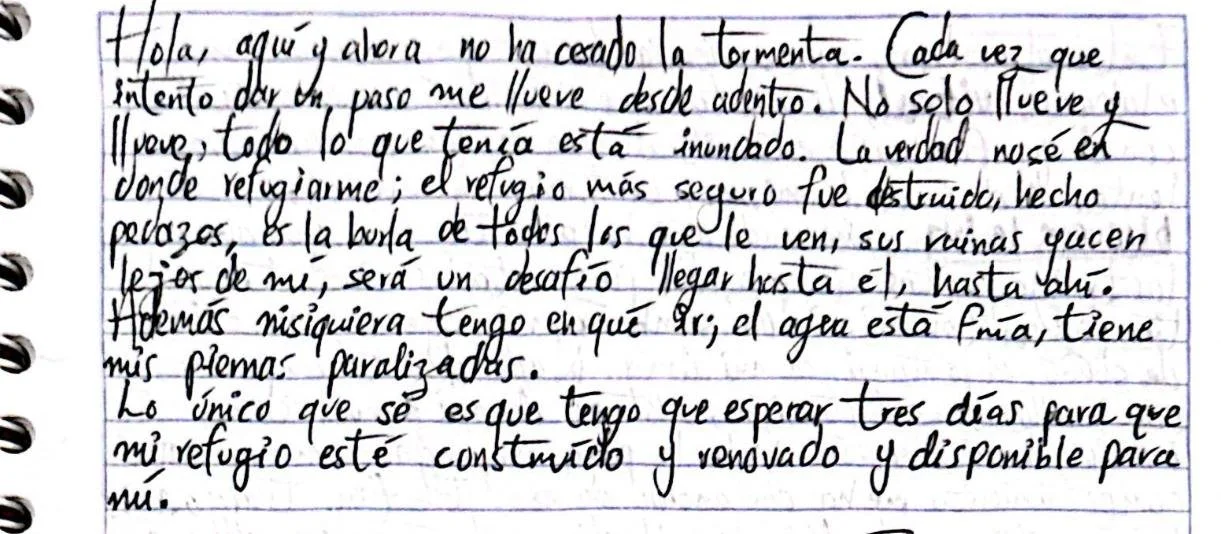 Hola, aquí y ahora no ha cesado la tormenta. Cada vez que
intento dar un paso me llueve desde adentro. No solo llueve y
llueve, todo lo que tenía está inundado. La verdad nosé en
donde refugiarme; el refugio más seguro fue destruido, hecho
pedazos, es la burla de todos los que le ven, sus ruinas yacen
lejos de mí, será un desafío llegar hasta él, hasta ahí.
Además nisiquiera tengo en qué ir; el agua está fría, tiene
mis piernas paralizadas.
Lo único que sé es que tengo que esperar tres días para que
mi refugio esté construído y renovado y disponible para
mí.